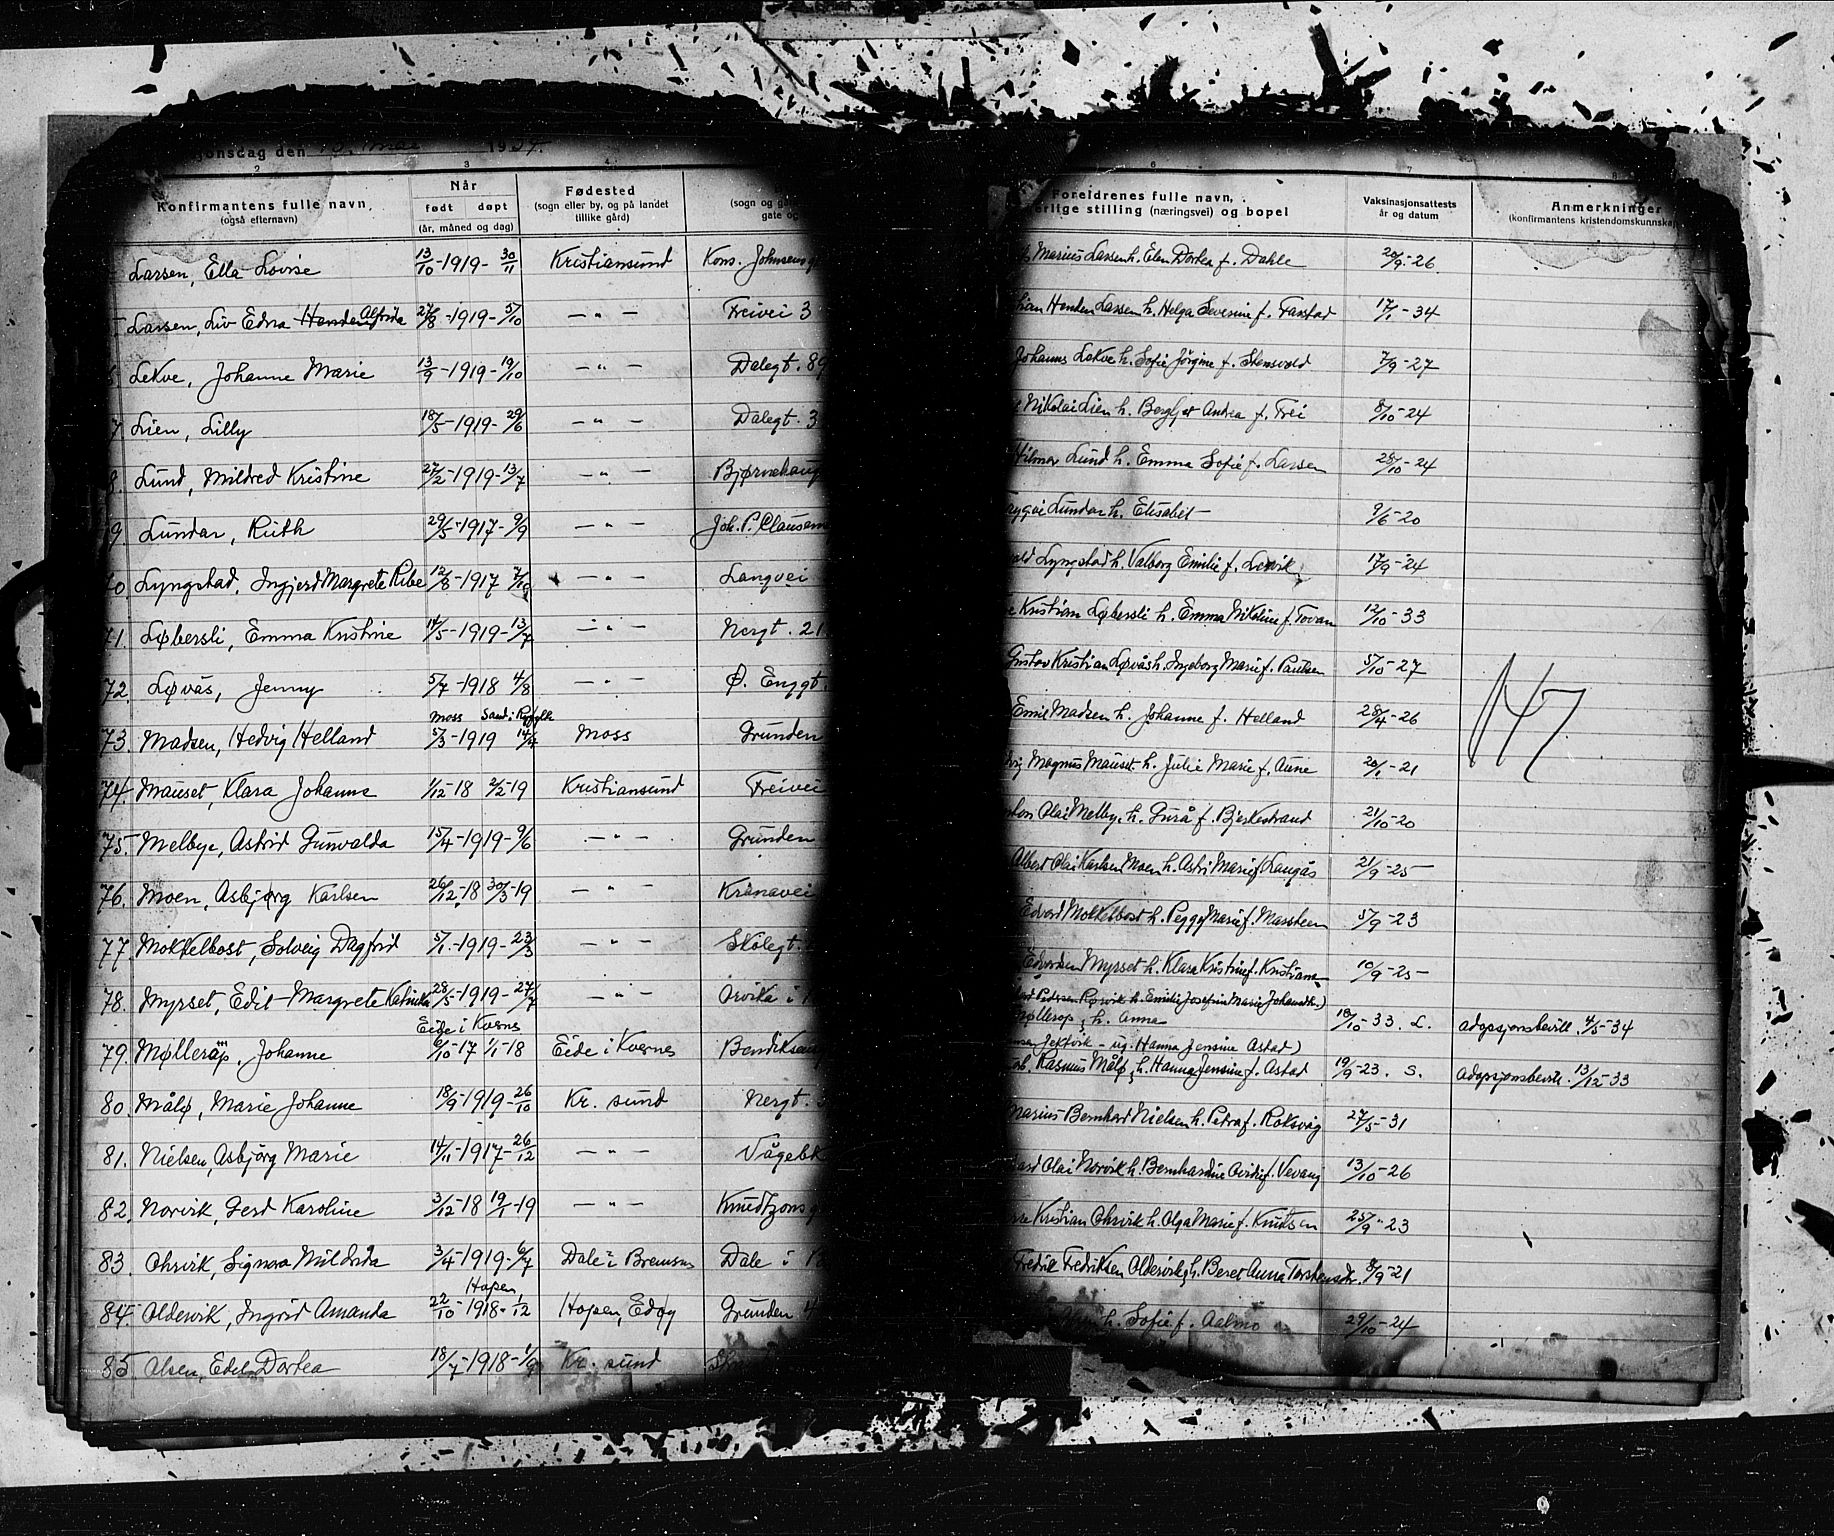 jonsdag den 1934.
2 3 4
Konfirmantens fulle navn,
(også efternavn)
Når
født døpt
(år, måned og dag)
Fødested
(sogn eller by, og på landet
tillike gård)
(sogn og
gate og
Larsen, Ella Lovise 13/10-1919-30/11 Kristiansund Kons. Johnsens
Larsen, Liv Edna Alfrida 27/8-1919-5/10 — " — Freivei 3
Lekve, Johanne Marie 13/9-1919-19/10 — " — Dalegt. 89
7 Lien, Lilly 18/5-1919-29/6 — " — Dalegt. 3
8. Lund, Mildred Kristine 27/2-1919-13/7 — " — Bjørnehaug
9. Lundar, Ruth 29/5-1917-9/9 — " — Joh. P. Clausens
70 Lyngstad, Ingjerd Margrete Ribe 12/8-1917 7/10 — " — Langvei
71. Løbersli, Emma Kristine 14/5-1919-13/7 — " — Nergt. 21
72. Løvås, Jenny 5/7-1918 4/8 — " — Ø. Enggt.
Moss Sand i Ryfylke
73. Madsen, Hedvig Helland 5/3-1919 14/4 Moss Grunden
74. Mauset, Klara Johanna 1/12-18 2/2-19 Kristiansund Freivei
75. Melbye, Astrid Gunvalda 15/4-1919-9/6 — " — Grunden
76. Moen, Asbjørg Karlsen 26/12-18 30/3-19 — " — Kranavei
77. Mokkelbost, Solveig Dagfrid 5/1-1919-23/3 — " — Skolegt.
78. Myrset, Edit Margrete Katinka 28/5-1919-27/7 — " — Orvika i
Eide i Kvernes
79. Møllerop, Johanne 6/10-17 1/1-18 Eide i Kvernes Bendiksen
80. Målø, Marie Johanne 18/9-1919-26/10 Kr. sund Nergt.
81. Nielsen, Asbjørg Marie 14/11-1917-26/12 — " — Vågebk
82. Norvik, Gerd Karoline 3/12-18 19/1-19 — " — Knudtzons
83. Ohrvik, Signora Mildrida 3/4-1919-6/7 Dale i Bremsnes Dale i
Hopen
84. Oldervik, Ingrid Amanda 22/10-1918-1/12 Hopen, Edøy Grunden 4
85 Olsen, Edel Dortea 18/7-1918-1/9 Kr. sund
6 7 8
Foreldrenes fulle navn,
erlige stilling (næringsvei) og bopel
Vaksinasjonsattests
år og datum
Anmerkninger
(konfirmantens kristendomskunnskap
Marius Larsen h. Elen Dortea f. Dahle 20/9-26
Larsen h. Helga Severine f. Farstad 17/1-34
Johannes Lekve h. Sofie Jørgine f. Stensvold 7/9-27
Nikolai Lien h. Bergljot Andrea f. Frei 8/10-24
Hilmar Lund h. Emma Sofie f. Larsen 28/10-24
Trygve Lundar h. Elisabet 9/6-20
Lyngstad h. Valborg Emilie f. Lervik 17/9-24
Kristian Løbersli h. Emma Nikoline f. Tovan 12/10-33
Gustav Kristian Løvås h. Ingeborg Marie f. Paulsen 5/10-27
147
Emil Madsen h. Johanne f. Helland 28/4-26
Magnus Mauset h. Julie Marie f. Aune 20/1-21
Olai Melbye h. Gurå f. Bjerkestrand 21/10-20
Albert Olai Karlsen Moen h. Astri Marie f. Langås 21/9-25
Edvard Mokkelbost h. Peggy Marie f. Marsteen 5/9-23
Edvardsen Myrset h. Klara Kristine f. Kristiansen 10/9-25
Pedersen Rørvik h. Emilie Josefine Marie Johansdtr.)
Møllerop, h. Anna 18/10-33. L. adopsjonsbevill. 4/5-34
ug. Hanna Jensine Astad)
Rasmus Målø, h. Hanna Jensine f. Astad 19/9-23. S. adopsjonsbevill. 13/12-33
Marius Bernhard Nielsen h. Petra f. Roksvåg 27/5-31
Olai Norvik h. Bernhardine Ovidie f. Vevang 13/10-26
Kristian Ohrvik h. Olga Marie f. Knutsen 25/9-23
Fredrik Fredriksen Oldervik h. Beret Anna Torstensdtr. 8/9-21
h. Sofie f. Aalmo 29/10-24